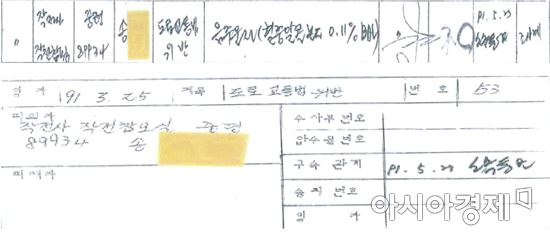 〃 작전사 작전참모실 중령 89934 송 도로교통법 위반 음주운전 (혈중알콜농도 0.11% BAL) 91.5.23
일자 91 3. 25 죄목 도로 교통법 위반 번호 53
피의자
작전사 작전참모실 중령
89934 송
피해자
수사부 번호
압수물 번호
구속 관계 91. 5. 23
송치 번호
일 자
아시아경제